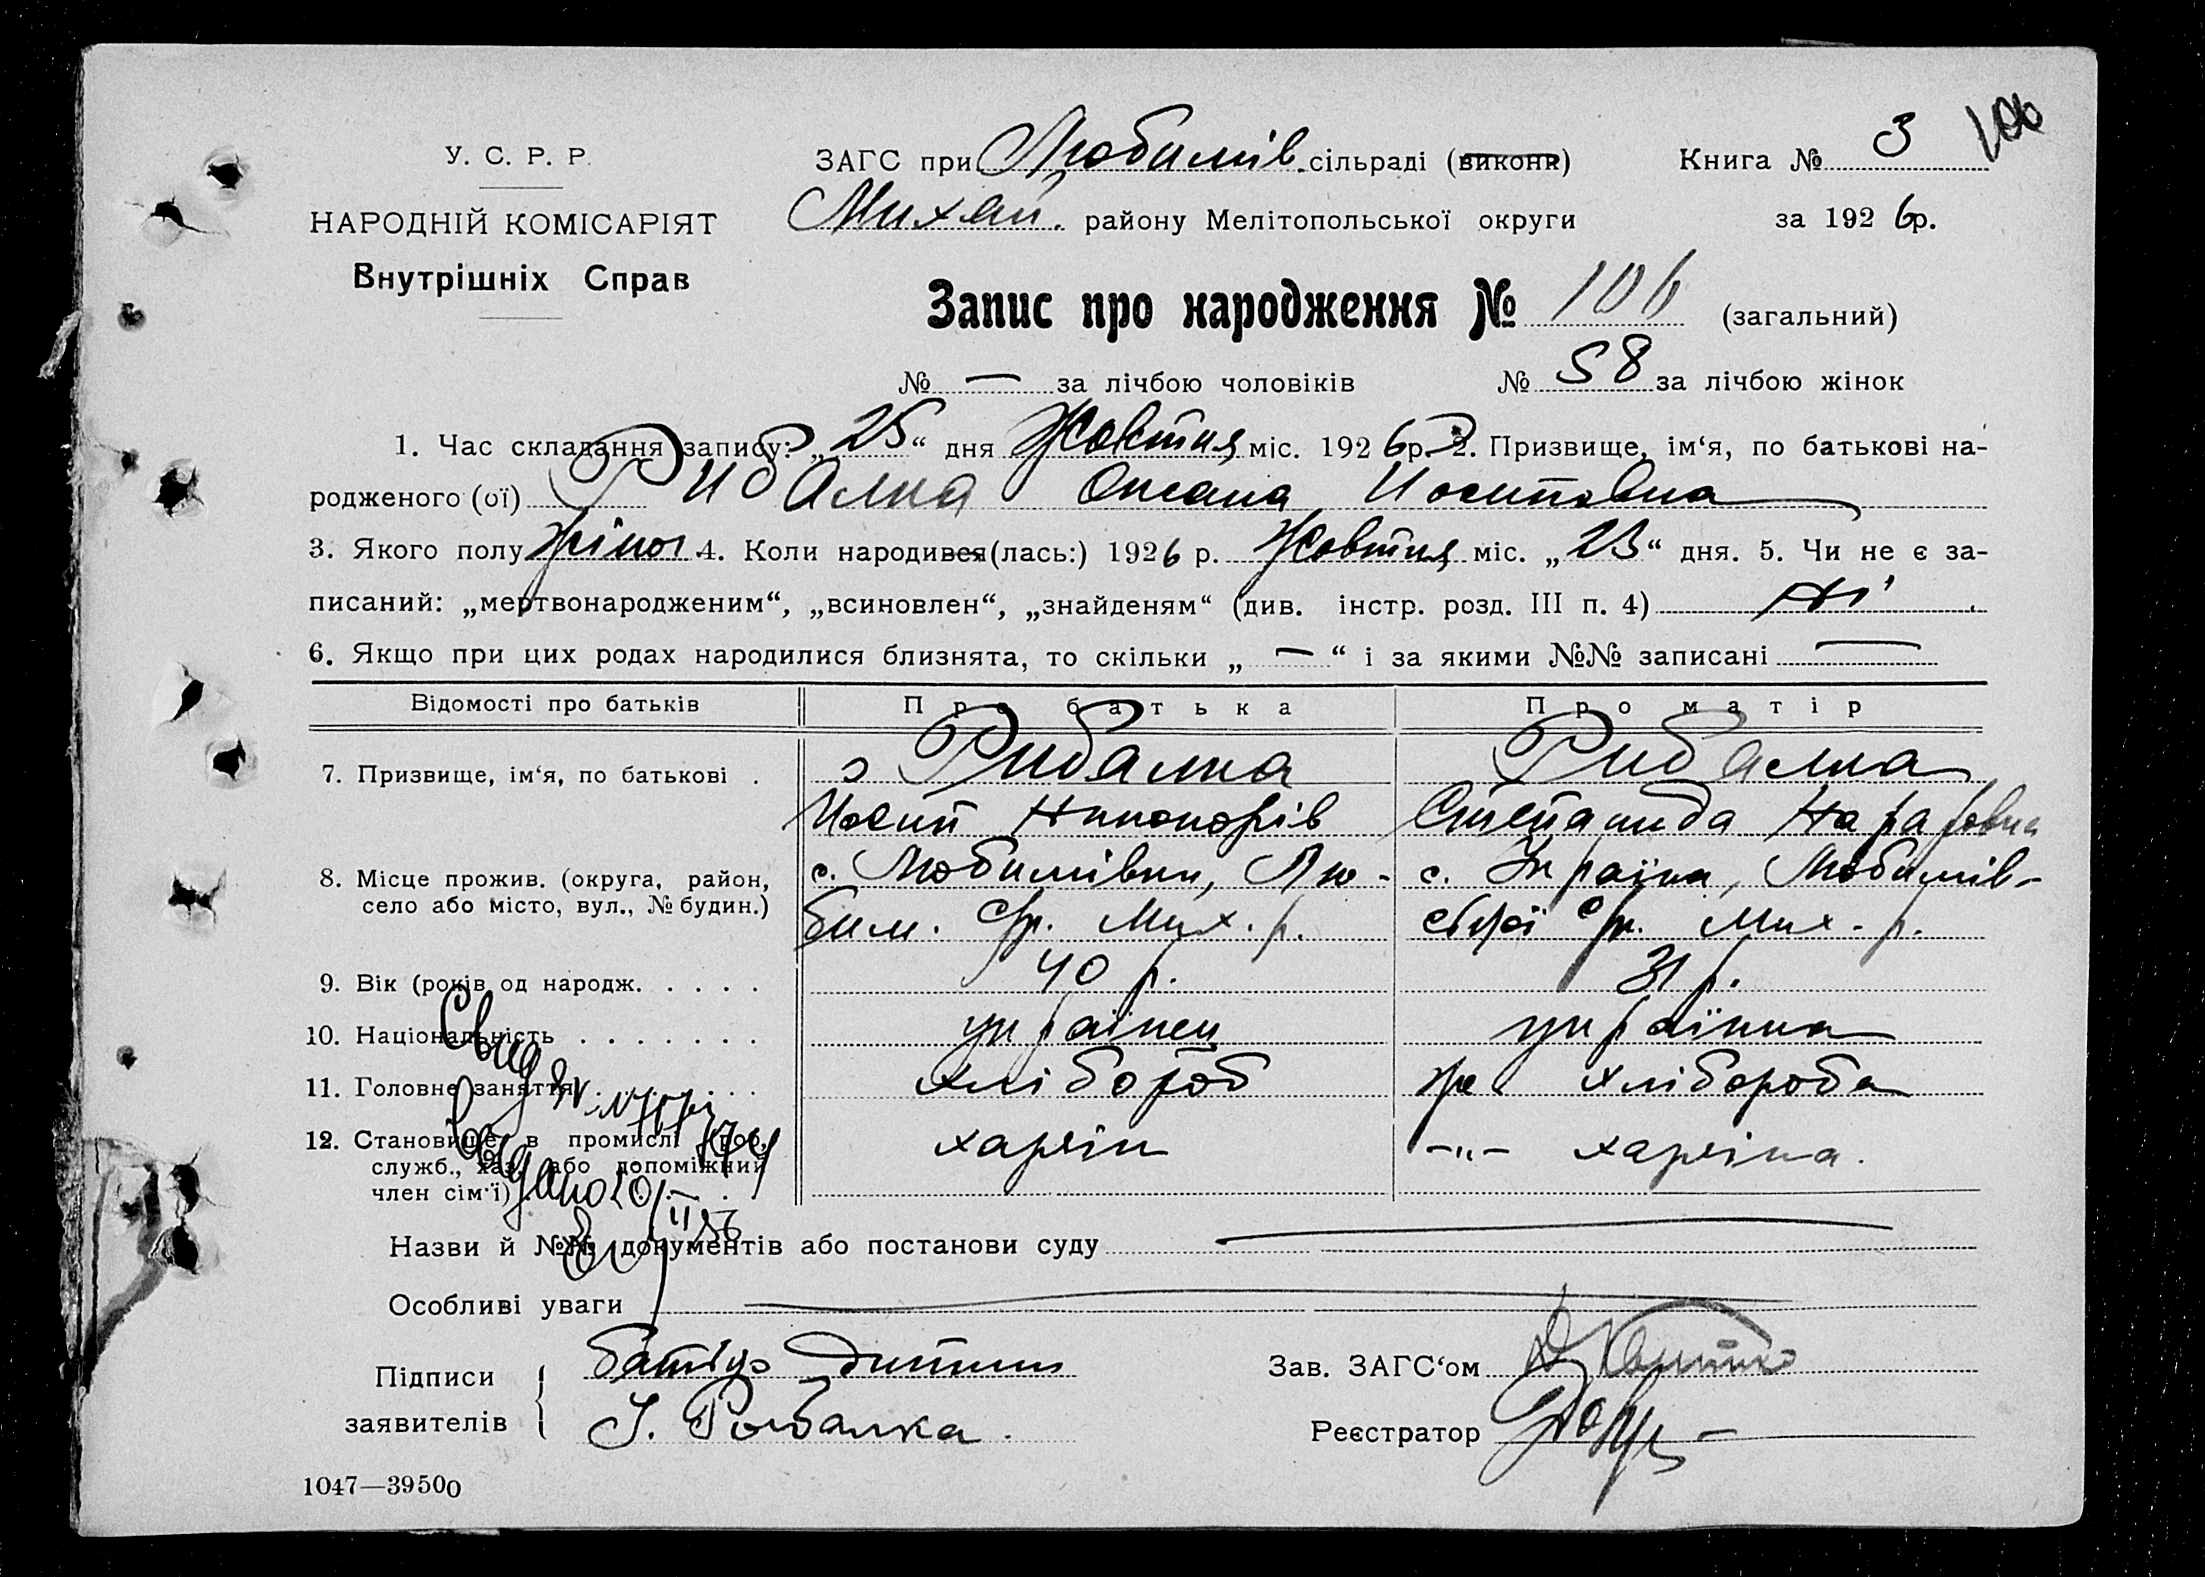 106
У. С. Р. Р.
ЗАГС при Любимів. сільраді (виконк)
Книга № 3
НАРОДНІЙ КОМІСАРІЯТ
Михай. району Мелітопольської округи
за 1926р.
Внутрішніх Справ
Запис про народження № 106 (загальний)
№ — за лічбою чоловіків № 58 за лічбою жінок
1. Час складання запису: „25“ дня Жовтня міс. 1926р. 2. Призвище, ім‘я, по батькові на-
родженого (ої) Рибалка Оксана Иосиповна
3. Якого полу жіноч. 4. Коли народився(лась:) 1926 р. Жовтня міс. „23“ дня. 5. Чи не є за-
писаний: „мертвонародженим“, „всиновлен“, „знайденям“ (див. інстр. розд. III п. 4) Ні
6. Якщо при цих родах народилися близнята, то скільки „ — “ і за якими №№ записані —
Відомості про батьків Про батька Про матір
7. Призвище, ім‘я, по батькові . Рибалка Рибалка
Иосип Никонорів Степанида
8. Місце прожив. (округа, район, с. Любимівки, Лю- с. Україна, Любимів-
село або місто, вул., № будин.) бим. с/р. Мих. р. ської с/р. Мих. р.
9. Вік (років од народж. . . . . 40 р. 31 р.
10. Національність . . . . . . . українец українка
11. Головне заняття . . . . . хлібороб хлібороба
12. Становище в промислі (роб., харчів -„- харчіна.
служб., хаз. або допоміжний
член сім‘ї)
Назви й №№ документів або постанови суду —
Особливі уваги —
Підписи батько дитини
заявителів І. Рибалка.
Зав. ЗАГС‘ом
Реєстратор
1047—39500